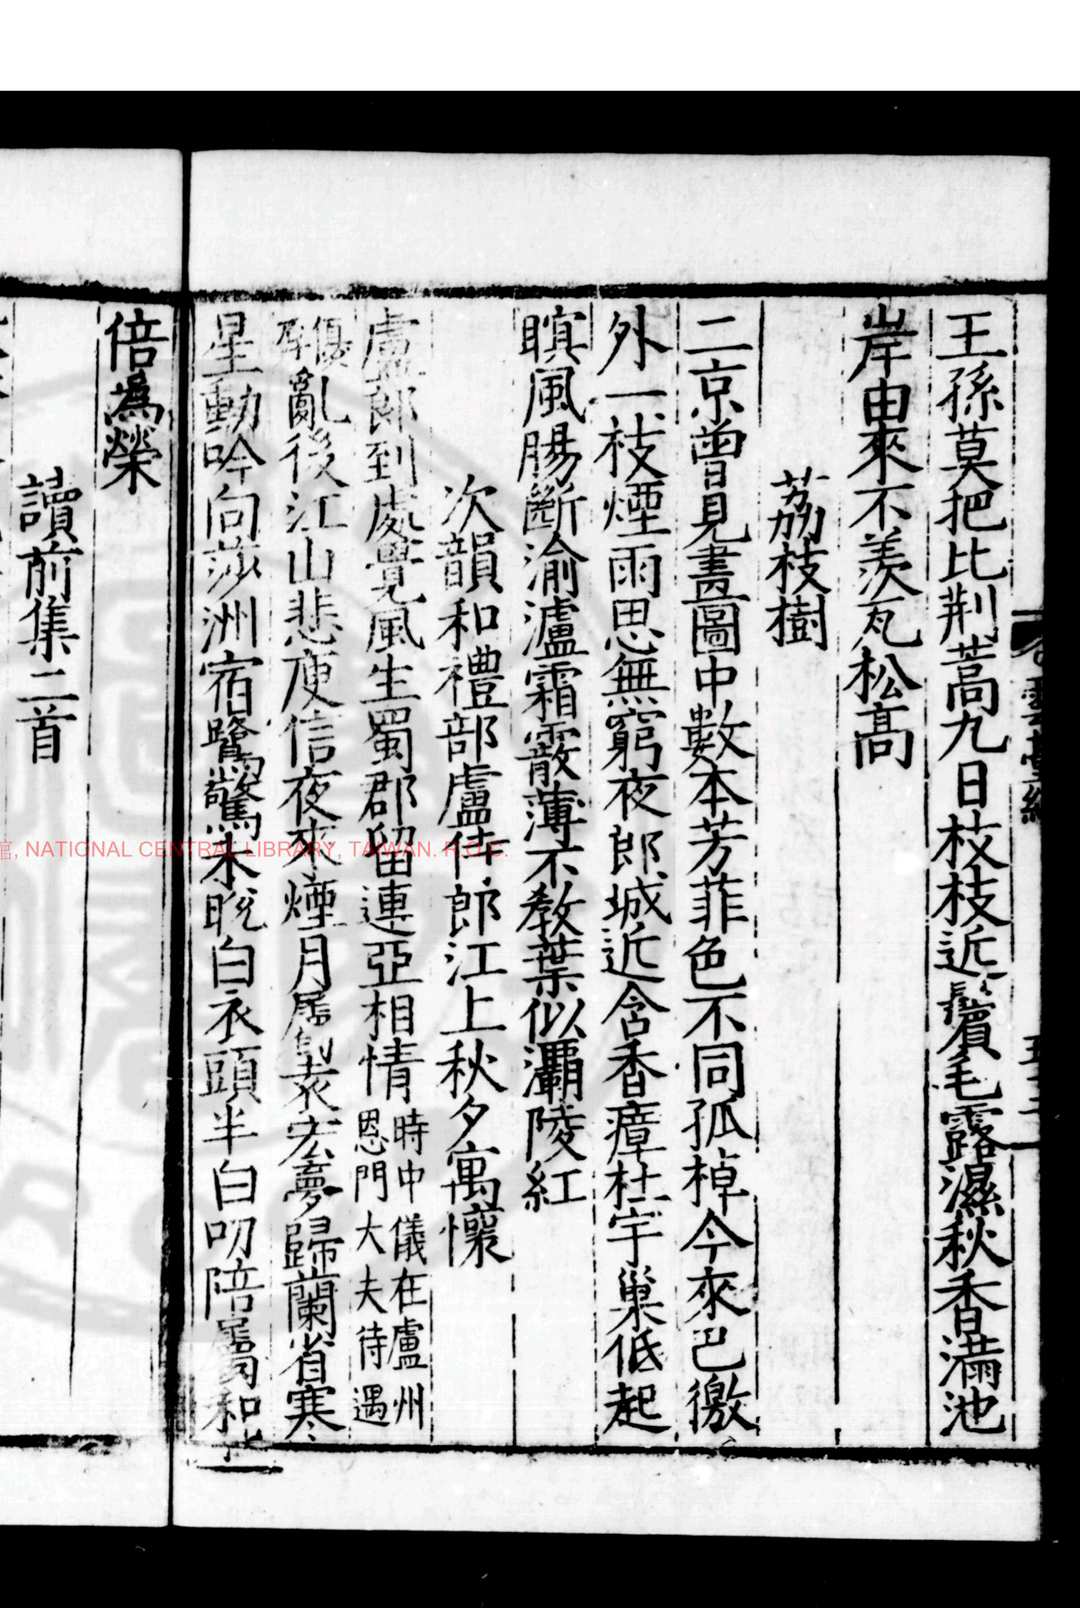 王孫莫把比荆蒿九日枝枝近鬢毛露濕秋香滿池
岸由來不羨瓦松高
荔枝樹
二京曾見畫圖中數本芳菲色不同孤棹今來巴徼
外一枝煙雨思無窮夜郎城近含香瘴杜宇巢低起
暝風腸斷渝瀘霜霰薄不教葉似灞陵紅
次韻和禮部盧侍郎江上秋夕寓懷
盧郎到處覺風生蜀郡留連亞相情時中儀在盧州恩門大夫待遇
優厚亂後江山悲庾信夜來煙月屬袁宏夢歸蘭省寒
星動吟向莎洲宿鷺驚未脫白衣頭半白叨陪屬和
倍為榮
讀前集二首
館, NATIONAL CENTRAL LIBRARY, TAIWAN. R.O.C.